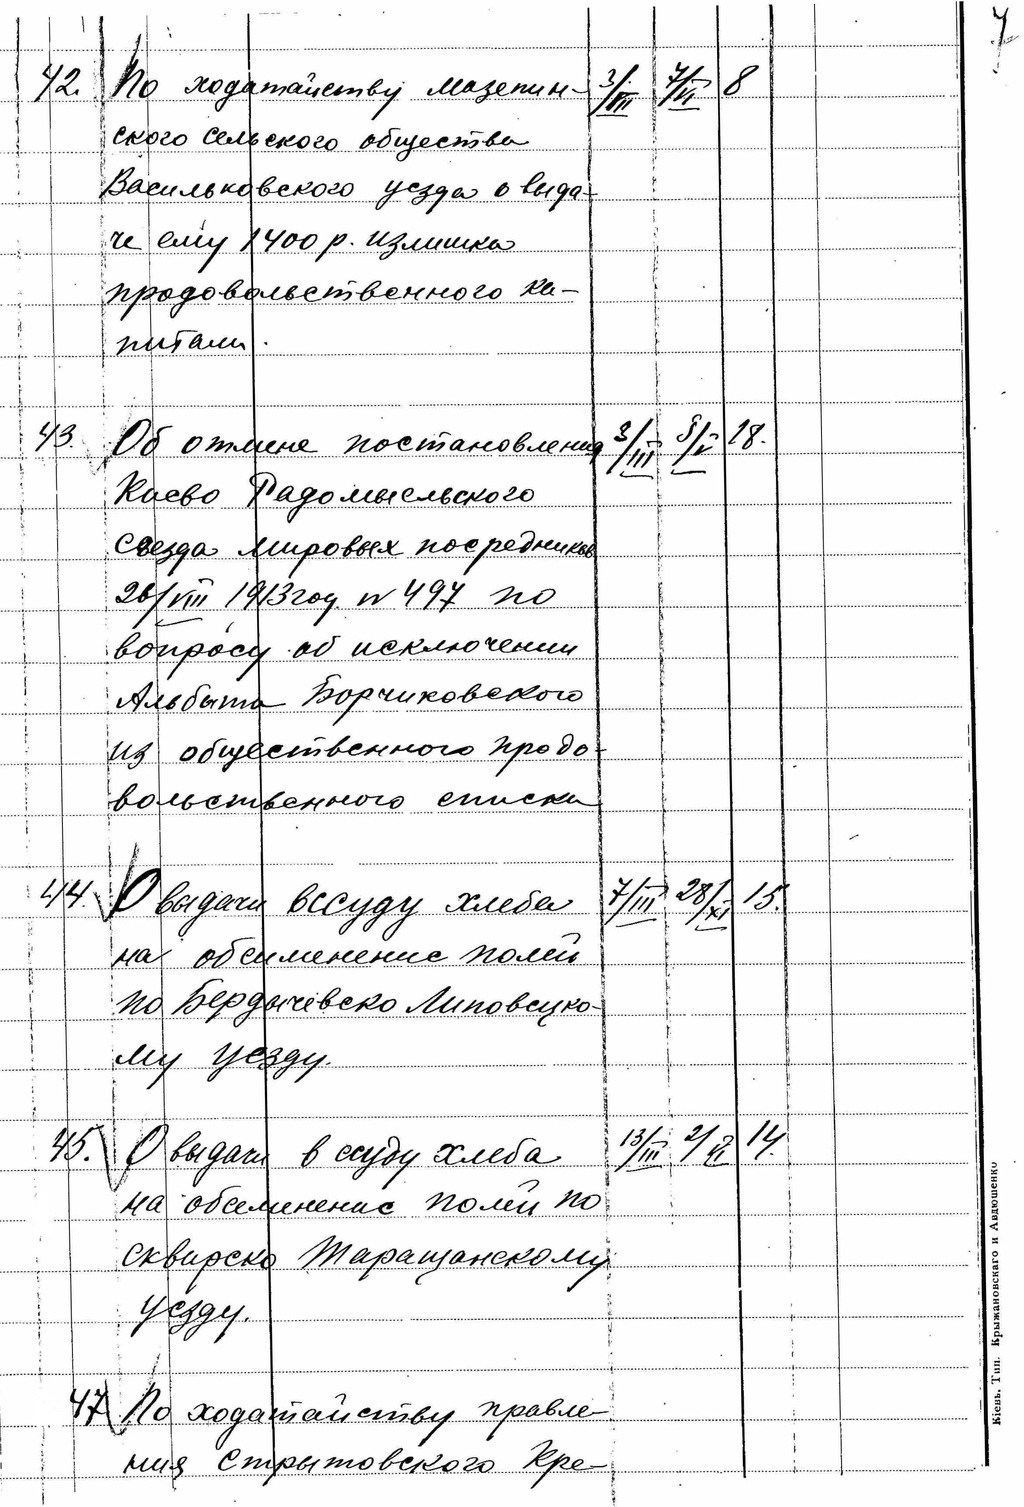 7
42. По ходатайству Мазепин- 3/III 7/VI 8
ского сельского общества
Васильковского уезда о выда-
че ему 1400 р. излишка
продовольственного ка-
питала.
43. Об отмене постановления 3/III 8/V 18.
Киево Радомысльского
съезда мировых посредников
26/VIII 1913 году N 497 по
вопросу об исключении
Альбыта Борчиковского
из общественного продо-
вольственного списка
44. О выдачи вссуду хлеба 7/III 28/XI 15.
на обсименение полей
по Бердычевско Липовецко-
му уезду.
45. О выдачи в ссуду хлеба 13/III 2/VI 14.
на обсеменение полей по
Сквирско Таращанскому
уезду.
47 По ходатайству правле-
ния Стрытовского Кре-
Кіевъ, Тип. Крыжановскаго и Авдюшенко